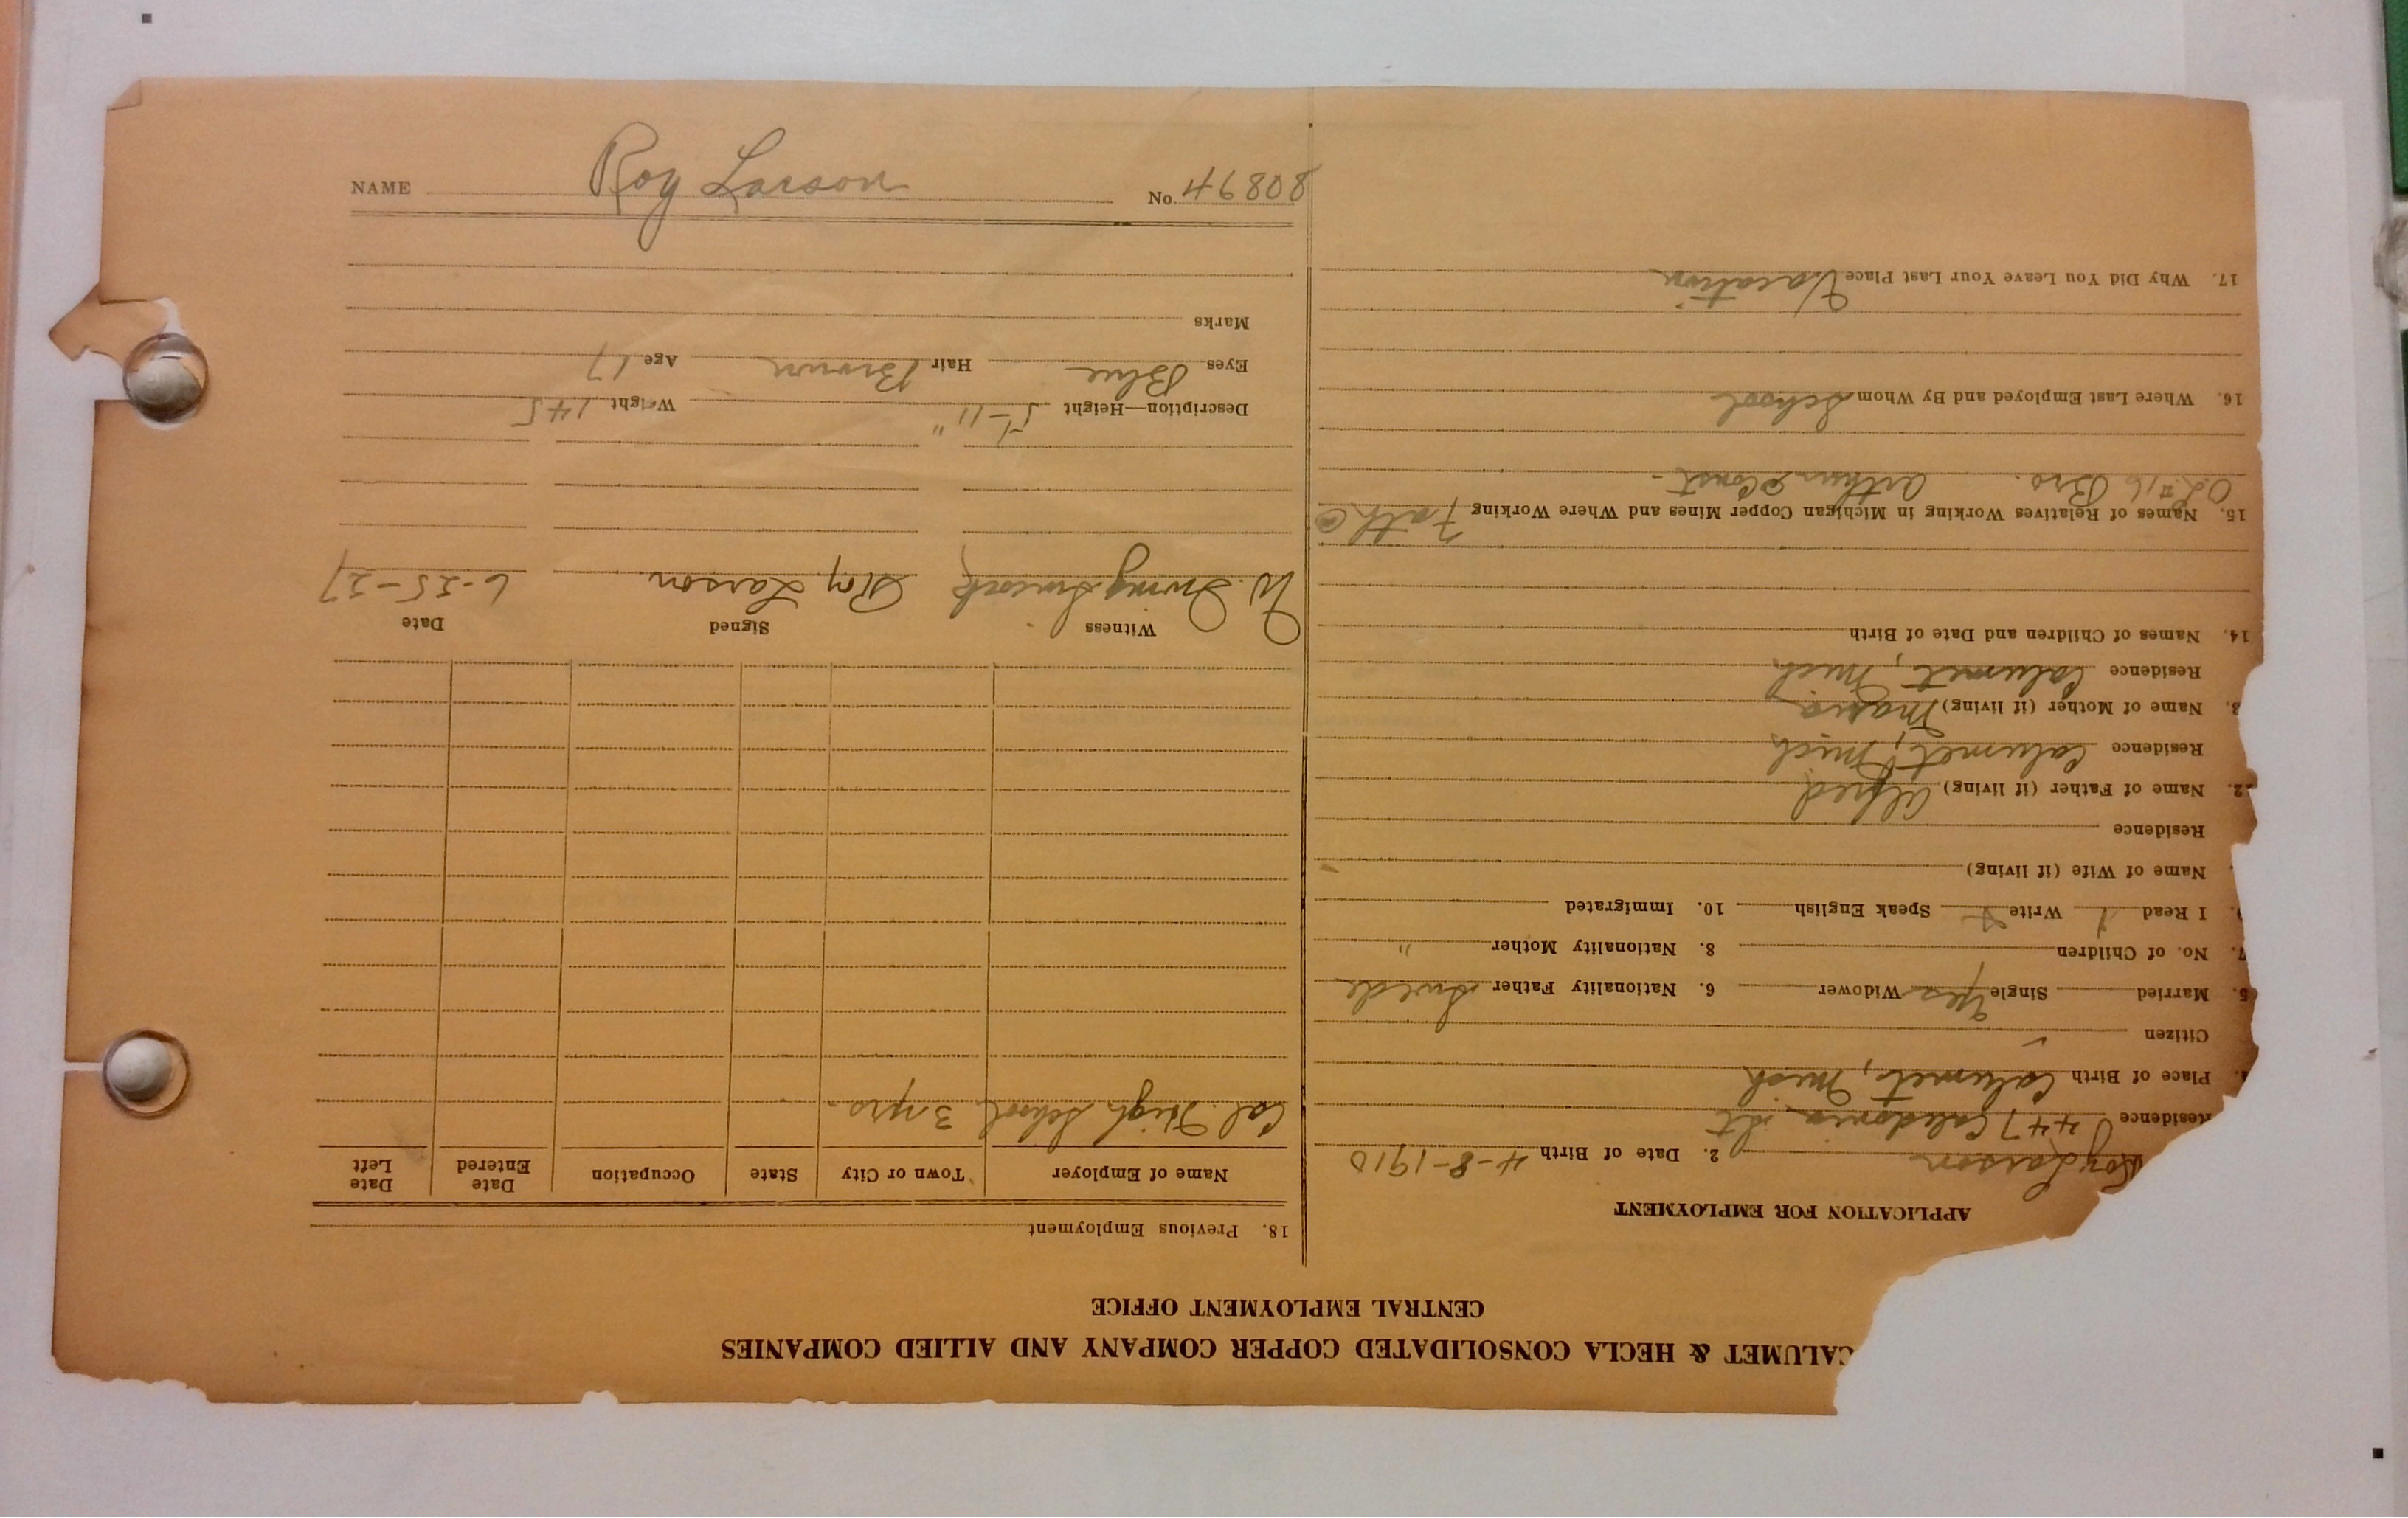 CALUMET & HECLA CONSOLIDATED COPPER COMPANY AND ALLIED COMPANIES
CENTRAL EMPLOYMENT OFFICE
APPLICATION FOR EMPLOYMENT
Roy Larson 2. Date of Birth 4-8-1910
Residence 447 Caledonia St
Place of Birth Calumet, Mich
Citizen
5. Married Single Yes Widower 6. Nationality Father Swede
7. No. of Children 8. Nationality Mother "
9. I Read Write Speak English 10. Immigrated
Name of Wife (if living)
Residence
12. Name of Father (if living) Alfred
Residence Calumet, Mich
3. Name of Mother (if living) Maria
Residence Calumet, Mich
14. Names of Children and Date of Birth
15. Names of Relatives Working in Michigan Copper Mines and Where Working Fath @
#16 Bro. Arthur Const.
16. Where Last Employed and By Whom School
17. Why Did You Leave Your Last Place Vacation
18. Previous Employment
Name of Employer Town or City State Occupation Date Entered Date Left
Cal. High School 3 yrs.
Witness Signed Date
W. Roy Larson 6-25-27
Description—Height 5-11" Weight 145
Eyes Blue Hair Brown Age 17
Marks
NAME Roy Larson No. 80894